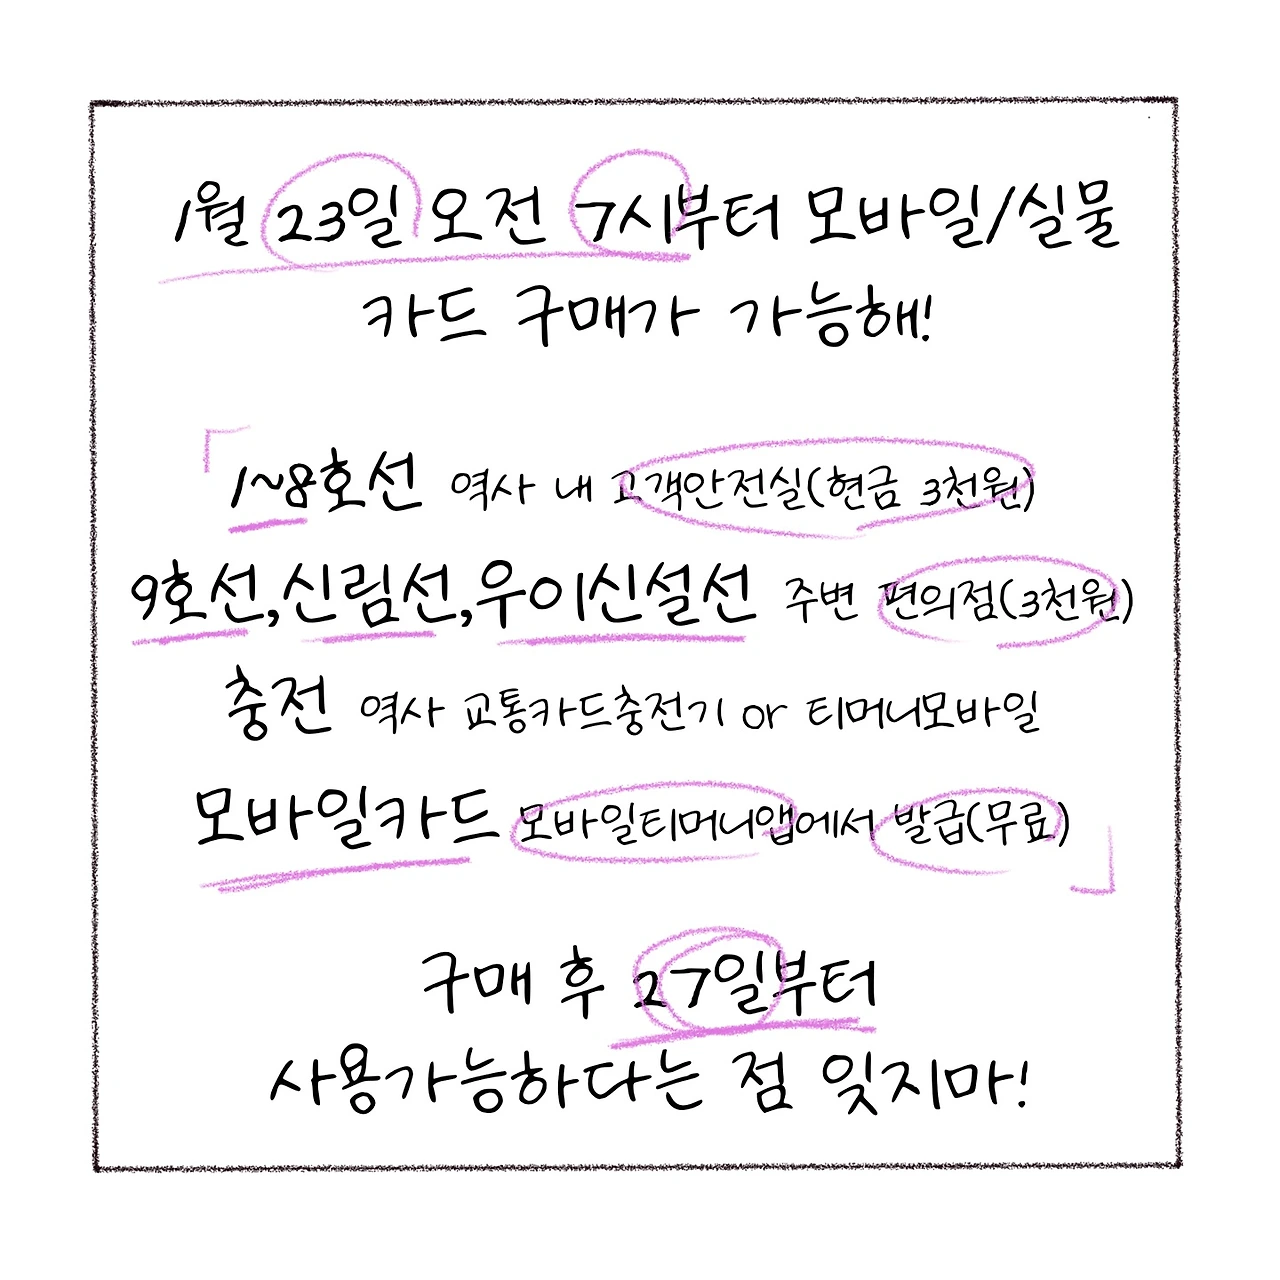 1월 23일 오전 7시부터 모바일/실물
카드 구매가 가능해!
「1~8호선 역사 내 고객안전실(현금 3천원)
9호선,신림선,우이신설선 주변 편의점(3천원)
충전 역사 교통카드충전기 or 티머니모바일
모바일카드 모바일티머니앱에서 발급(무료)」
구매 후 27일부터
사용가능하다는 점 잊지마!